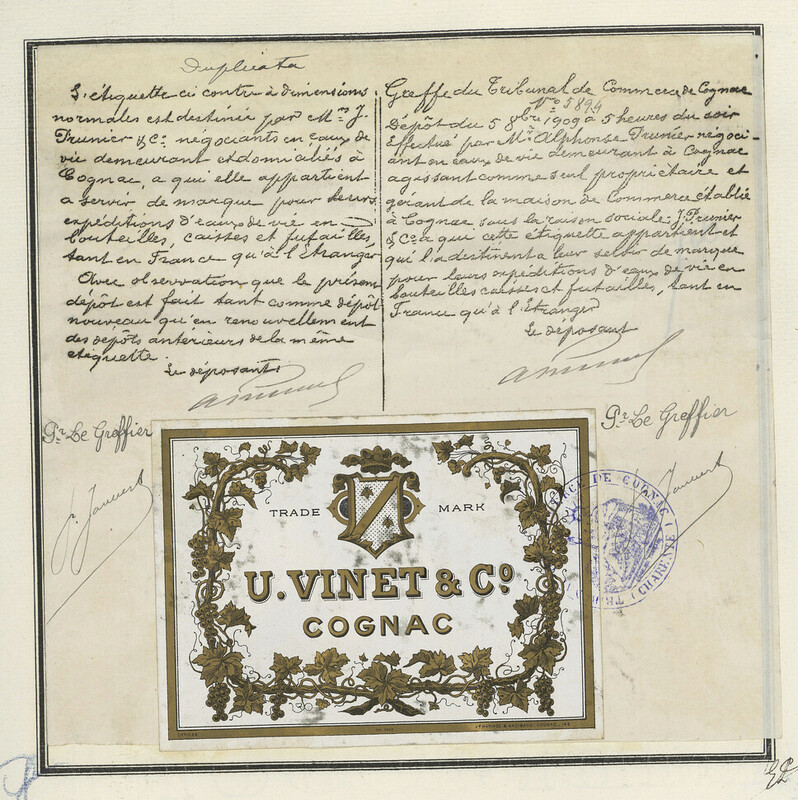 Duplicata
L'étiquette ci contre à dimensions
normales est destinée par Mrs J.
Prunier & Co. négociants en eaux de
vie demeurant et domiciliés à
Cognac, a qui elle appartient
a servir de marque pour leurs
expéditions d'eaux de vie en
bouteilles, caisses et futailles,
tant en France qu'à l'Etranger
Avec observation que le présent
dépôt est fait tant comme dépôt
nouveau qu'en renouvellement
des dépôts antérieurs de la même
étiquette.
Le déposant
Greffe du Tribunal de Commerce de Cognac
No 5894
Dépôt du 5 8bre 1909 à 5 heures du soir
Effectué par Mr Alphonse Prunier négoci-
ant en eaux de vie demeurant à Cognac
agissant comme seul propriétaire et
gérant de la maison de Commerce établie
à Cognac sous la raison sociale J. Prunier
& Co a qui cette étiquette appartient et
qui l'a destinent a leur servir de marque
pour leurs expéditions d'eaux de vie en
bouteilles caisses et futailles, tant en
France qu'à l'Etranger
Le déposant
Pr Le Greffier
Pr Le Greffier
TRADE MARK
U. VINET & Co
COGNAC
DE COGNAC (CHARENTE)